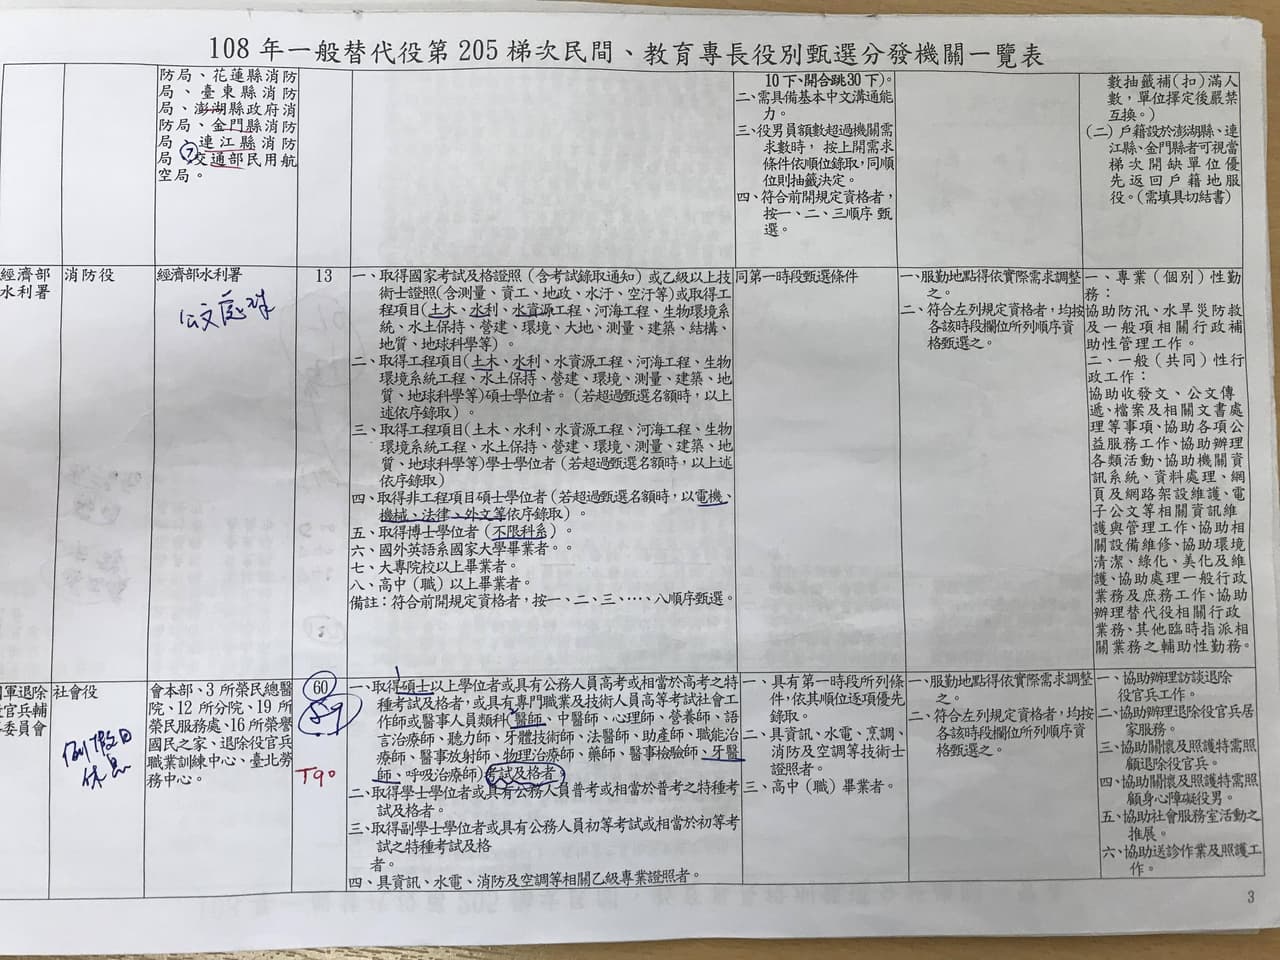 108 年一般替代役第 205 梯次民間、教育專長役別甄選分發機關一覽表
防局、花蓮縣消防
局、臺東縣消防
局、澎湖縣政府消
防局、金門縣消防
局、連江縣消防
局⑦交通部民用航
空局。
10 下、開合跳30 下)。
二、需具備基本中文溝通能
力。
三、役男員額數超過機關需
求數時，按上開需求
條件依順位錄取，同順
位則抽籤決定。
四、符合前開規定資格者，
按一、二、三順序 甄
選。
數抽籤補(扣)滿人
數，單位擇定後嚴禁
互換。)
(二) 戶籍設於澎湖縣、連
江縣、金門縣者可視當
梯次開缺單位優
先返回戶籍地服
役。(需填具切結書)
經濟部
水利署
消防役
經濟部水利署
公文
13
一、取得國家考試及格證照（含考試錄取通知）或乙級以上技
術士證照(含測量、資工、地政、水汙、空汙等)或取得工
程項目(土木、水利、水資源工程、河海工程、生物環境系
統、水土保持、營建、環境、大地、測量、建築、結構、
地質、地球科學等）。
二、取得工程項目(土木、水利、水資源工程、河海工程、生物
環境系統工程、水土保持、營建、環境、測量、建築、地
質、地球科學等)碩士學位者。（若超過甄選名額時，以上
述依序錄取）。
三、取得工程項目(土木、水利、水資源工程、河海工程、生物
環境系統工程、水土保持、營建、環境、測量、建築、地
質、地球科學等)學士學位者（若超過甄選名額時，以上述
依序錄取）
四、取得非工程項目碩士學位者（若超過甄選名額時，以電機、
機械、法律、外文等依序錄取）。
五、取得博士學位者（不限科系）。
六、國外英語系國家大學畢業者。。
七、大專院校以上畢業者。
八、高中（職）以上畢業者。
備註：符合前開規定資格者，按一、二、三、…、八順序甄選。
同第一時段甄選條件
一、服勤地點得依實際需求調整
之。
二、符合左列規定資格者，均按
各該時段欄位所列順序資
格甄選之。
一、專業（個別）性勤
務：
協助防汛、水旱災防救
及一般項相關行政補
助性管理工作。
二、一般（共同）性行
政工作：
協助收發文、公文傳
遞、檔案及相關文書處
理等事項、協助各項公
益服務工作、協助辦理
各類活動、協助機關資
訊系統、資料處理、網
頁及網路架設維護、電
子公文等相關資訊維
護與管理工作、協助相
關設備維修、協助環境
清潔、綠化、美化及維
護、協助處理一般行政
業務及庶務工作、協助
辦理替代役相關行政
業務、其他臨時指派相
關業務之輔助性勤務。
軍退除
官兵輔
委員會
社會役
例假日
休息
會本部、3 所榮民總醫
院、12 所分院、19 所
榮民服務處、16 所榮譽
國民之家、退除役官兵
職業訓練中心、臺北勞
務中心。
60
59
T90
一、取得碩士以上學位者或具有公務人員高考或相當於高考之特
種考試及格者，或具有專門職業及技術人員高等考試社會工
作師或醫事人員類科（醫師、中醫師、心理師、營養師、語
言治療師、聽力師、牙體技術師、法醫師、助產師、職能治
療師、醫事放射師、物理治療師、藥師、醫事檢驗師、牙醫
師、呼吸治療師)考試及格者
二、取得學士學位者或具有公務人員普考或相當於普考之特種考
試及格者。
三、取得副學士學位者或具有公務人員初等考試或相當於初等考
試之特種考試及格
者。
四、具資訊、水電、消防及空調等相關乙級專業證照者。
一、具有第一時段所列條
件，依其順位逐項優先
錄取。
二、具資訊、水電、烹調、
消防及空調等技術士
證照者。
三、高中（職）畢業者。
一、服勤地點得依實際需求調整
之。
二、符合左列規定資格者，均按
各該時段欄位所列順序資
格甄選之。
一、協助辦理訪談退除
役官兵工作。
二、協助辦理退除役官兵居
家服務。
三、協助關懷及照護特需照
顧退除役官兵。
四、協助關懷及照護特需照
顧身心障礙役男。
五、協助社會服務室活動之
推展。
六、協助送診作業及照護工
作。
3